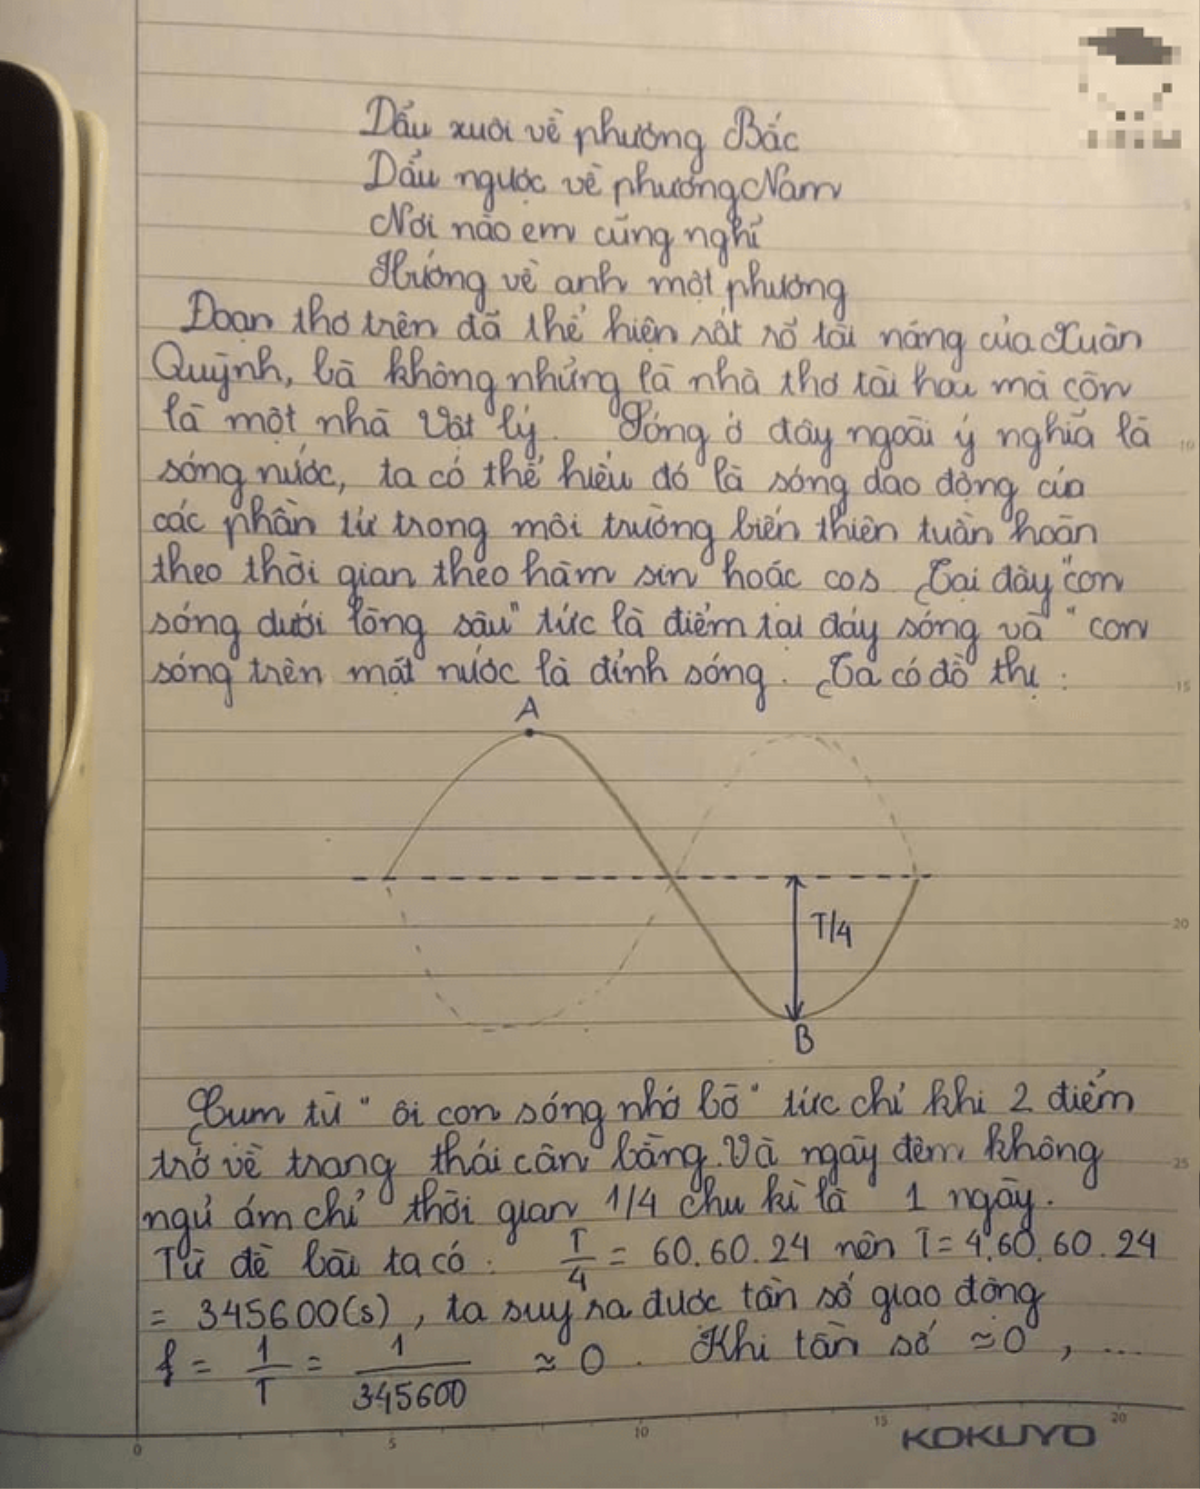 Dẫu xuôi về phương Bắc
Dẫu ngược về phương Nam
Nơi nào em cũng nghĩ
Hướng về anh một phương
Đoạn thơ trên đã thể hiện rất rõ tài năng của Xuân
Quỳnh, bà không những là nhà thơ tài hoa mà còn
là một nhà Vật lý. Sóng ở đây ngoài ý nghĩa là
sóng nước, ta có thể hiểu đó là sóng dao động của
các phần tử trong môi trường biến thiên tuần hoàn
theo thời gian theo hàm sin hoặc cos. Tại đây "con
sóng dưới lòng sâu" tức là điểm tại đáy sóng và "con
sóng trên mặt nước là đỉnh sóng. Ta có đồ thị:
A
T/4
B
Cụm từ "ôi con sóng nhớ bờ" tức chỉ khi 2 điểm
trở về trạng thái cân bằng. Và ngày đêm không
ngủ ám chỉ thời gian 1/4 chu kì là 1 ngày.
Từ đề bài ta có: T/4 = 60.60.24 nên T = 4.60.60.24
= 345600(s), ta suy ra được tần số giao động
f = 1/T = 1/345600 ≈ 0. Khi tần số ≈ 0, ...
0 5 10 15 20
KOKUYO